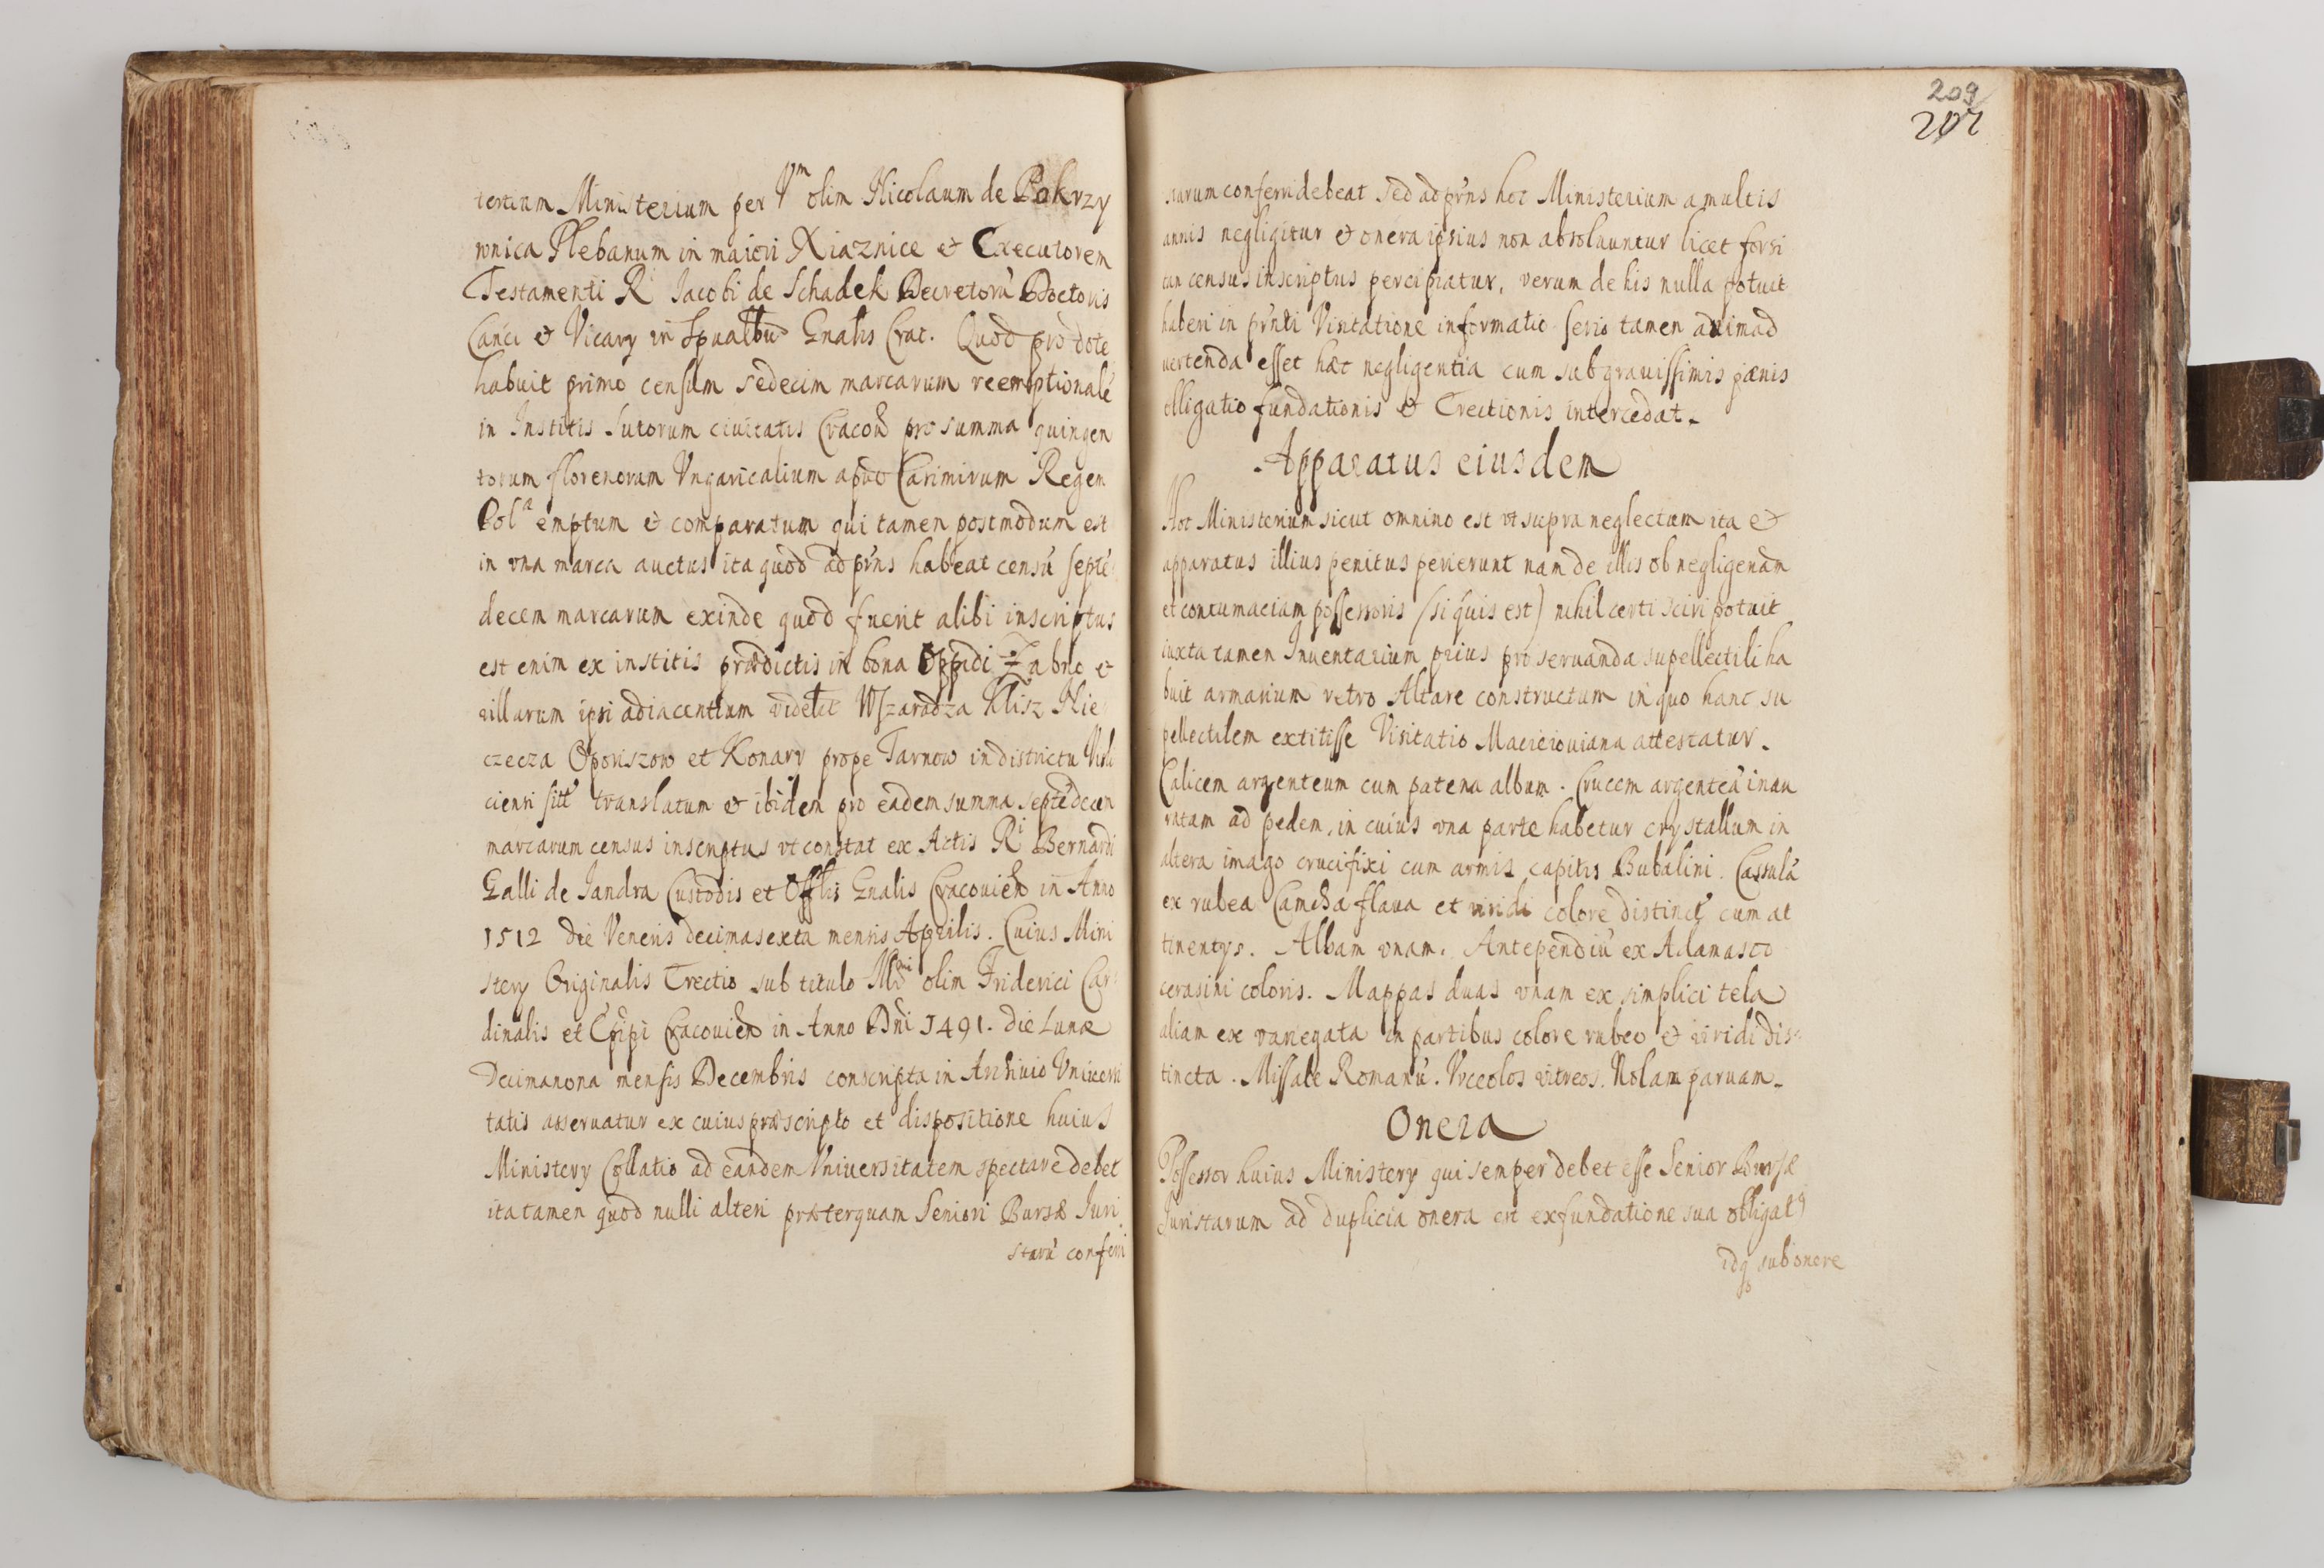 tertium Ministerium per Vm olim Nicolaum de Pokrzy
wnica Plebanum in maiori Xiaznice et Executorem
Testamenti R Jacobi de Schadek Decretorú Doctoris
Canci et Vicary in Spualibus Gnalis Crac. Quod pro dote
habuit primo censum sedecim marcarum reemptionalé
in Institis Sutorum ciuitatis Cracoú pro summa quingen
torum florenorum Vngaricalium apud Casimirum Regem
Pola emptum et comparatum qui tamen postmodum est
in vna marca auctus ita quod ad pńs habeat censú septé
decem marcarum exinde quod fuerit alibi inscriptus
est enim ex institis prædictis in bona Oppidi Zabno et
villarum ipsi adiacentium videlet Wszaradza Klisz Nie
czecza Oporiszow et Konary prope Tarnow in districtu Visli
ciensi sitt translatum et ibidem pro eadem summa septédecem
marcarum census inscriptus vt constat ex Actis Ri Bernardi
Galli de Jandra Custodis et Offlis Gnalis Cracouień in Anno
1512 die Veneris decimasexta mensis Aprilis. Cuius Mini
stery Originalis Erectio sub titulo olim Friderici Car
dinalis et Epipi Cracouień in Anno Dni 1491. die Lunæ
Decimanona mensis Decembris conscripta in Archiuio Vniuersi
tatis asseruatur ex cuius præscripto et dispositione huius
Ministery Collatio ad eandem Vniuersitatem spectare debet
ita tamen quod nulli alteri præterquam Seniori Bursæ Juri
starú conferri
209
207
starum conferri debeat sed ad pńs hoc Ministerium a multis
annis negligitur et onera ipsius non absoluuntur licet forsi
tan census inscriptus percipiatur, verum de his nulla potuit
haberi in pńti Visitatione informatio serio tamen animad
uertenda esset hæc negligentia cum sub grauissimis pænis
obligatio fundationis et Erectionis intercedat.
Apparatus eiusdem
Hoc Ministerium sicut omnino est vt supra neglectum ita et
apparatus illius penitus perierunt nam de illis ob negligenam
et contumaciam possessoris (si quis est) nihil certi sciri potuit
iuxta tamen Inuentarium prius pro seruanda supellectili ha
buit armarium retro Altare constructum in quo hanc su
pellectilem extitisse Visitatio Macieiouiana attestatur.
Calicem argenteum cum patena album. Crucem argenteá inau
ratam ad pedem, in cuius vna parte habetur crystallum in
altera imago crucifixi cum armis capitis Bubalini. Cassulá
ex rubea Camcha flaua et viridi colore distinct cum at
tinentys. Albam vnam. Antependiú ex Adamasco
cerasini coloris. Mappas duas vnam ex simplici tela
aliam ex variegata in partibus colore rubeo et viridi dis-
tincta. Missale Romanú. Vrceolos vitreos. Nolam paruam.
Onera
Possessor huius Ministery qui semper debet esse Senior Bursæ
Juristarum ad duplicia onera ex fundatione sua obligat9
idq sub onere